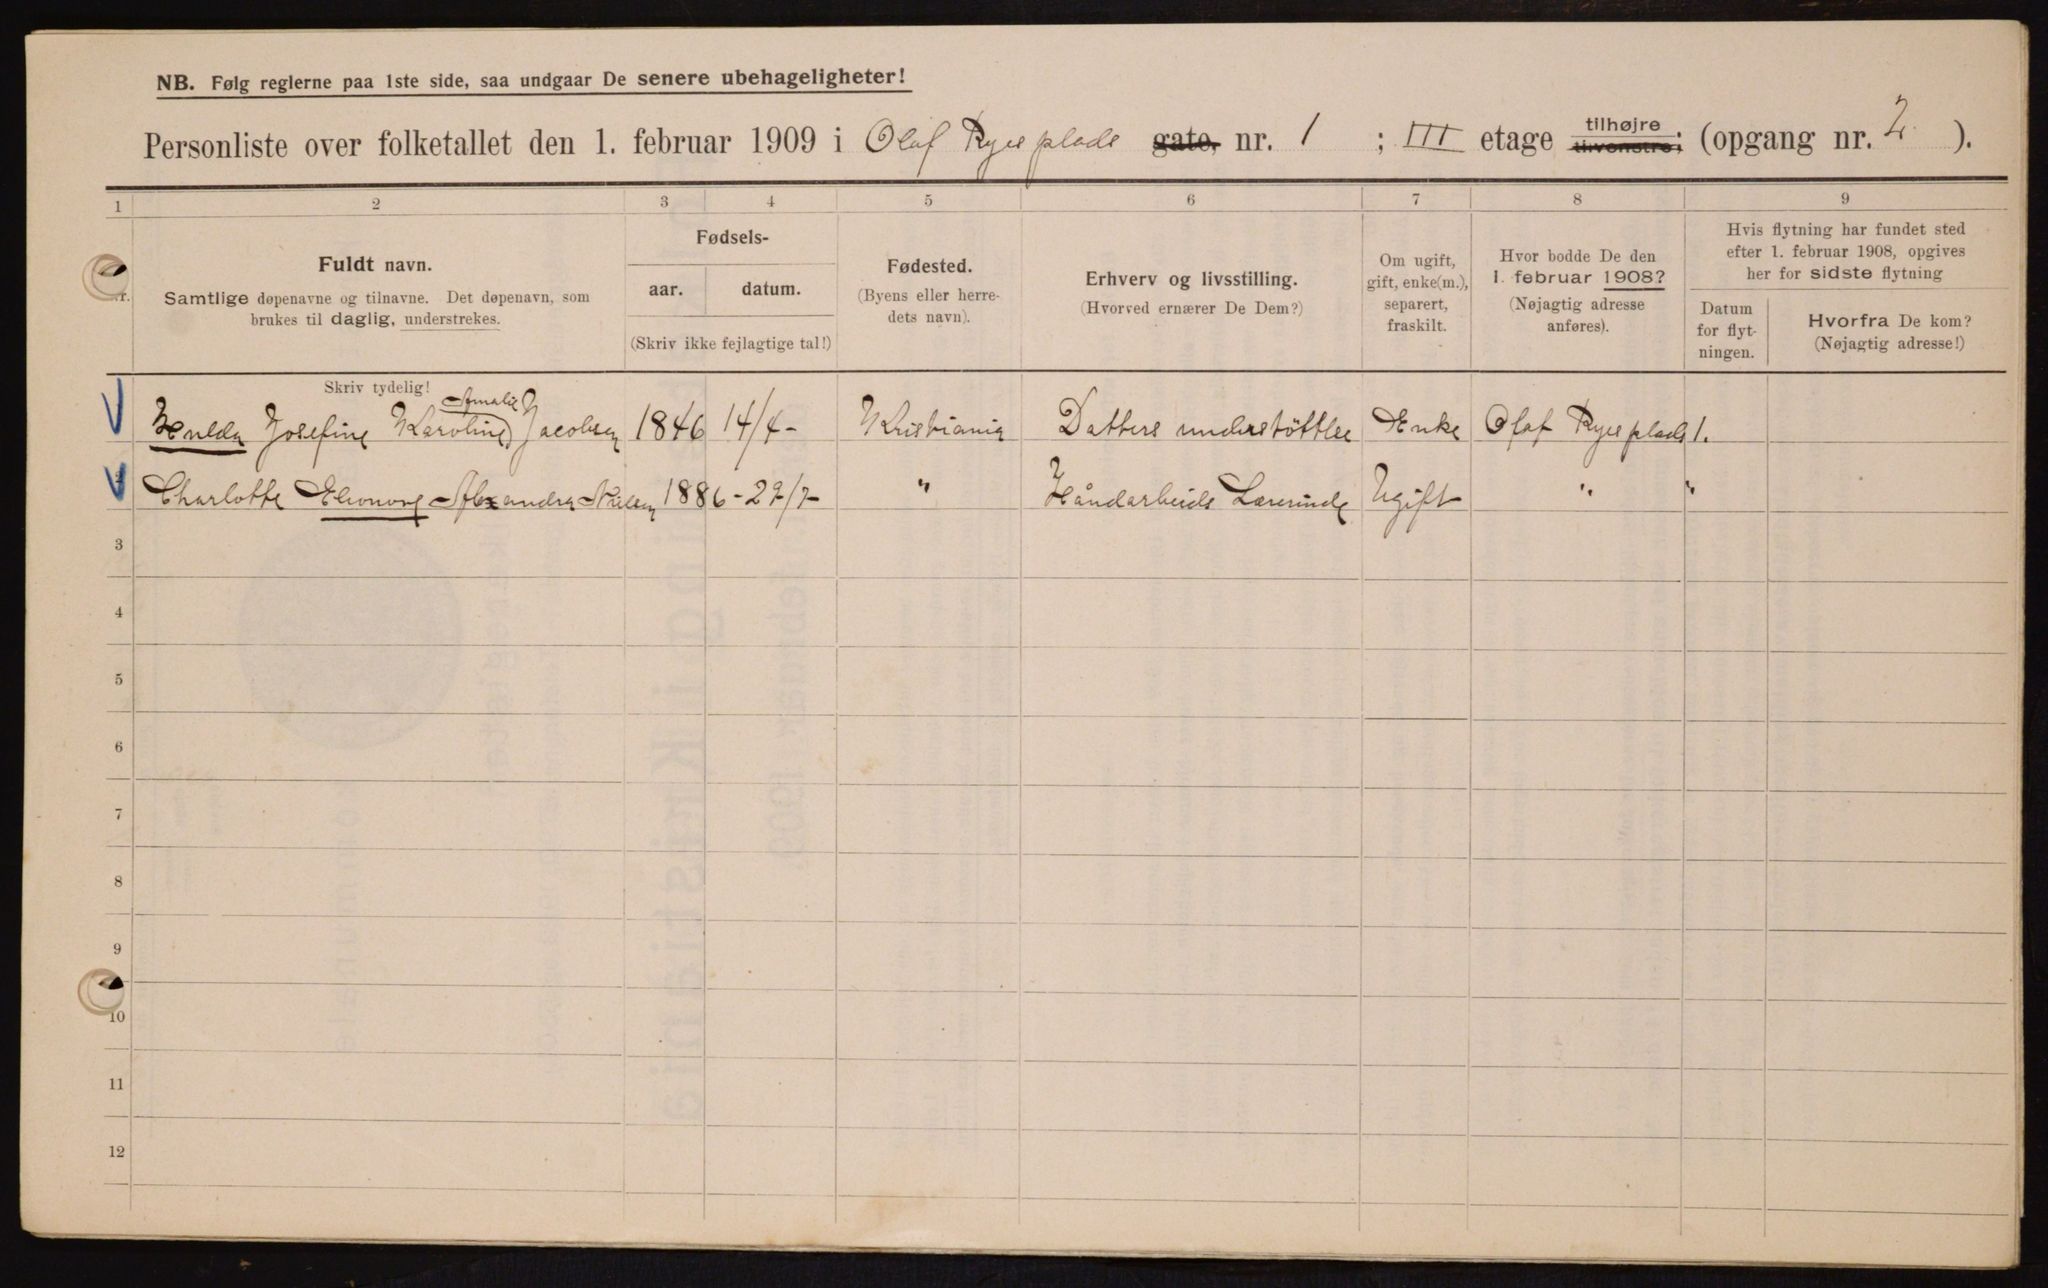 NB. Følg reglerne paa 1ste side, saa undgaar De senere ubehageligheter!
Personliste over folketallet den 1. februar 1909 i Olaf Ryes plads gate, nr. 1 ; III etage tilhøjre tilvenstre; (opgang nr. 2 ).
1 2 3 4 5 6 7 8 9
Nr.
Fuldt navn.
Samtlige døpenavne og tilnavne. Det døpenavn, som
brukes til daglig, understrekes.
Fødsels-
aar. datum.
(Skriv ikke fejlagtige tal!)
Fødested.
(Byens eller herre-
dets navn).
Erhverv og livsstilling.
(Hvorved ernærer De Dem?)
Om ugift,
gift, enke(m.),
separert,
fraskilt.
Hvor bodde De den
1. februar 1908?
(Nøjagtig adresse
anføres).
Hvis flytning har fundet sted
efter 1. februar 1908, opgives
her for sidste flytning
Datum
for flyt-
ningen.
Hvorfra De kom?
(Nøjagtig adresse!)
Skriv tydelig!
Amalie
Hulda Josefine Karoline Jacobsen 1846 14/4- Kristiania Datters understöttlse Enke Olaf Ryes plads 1.
Charlotte Elionore Alexandra Nielsen 1886 - 29/7- " Håndarbeids Lærerinde Ugift " "
3
4
5
6
7
8
9
10
11
12